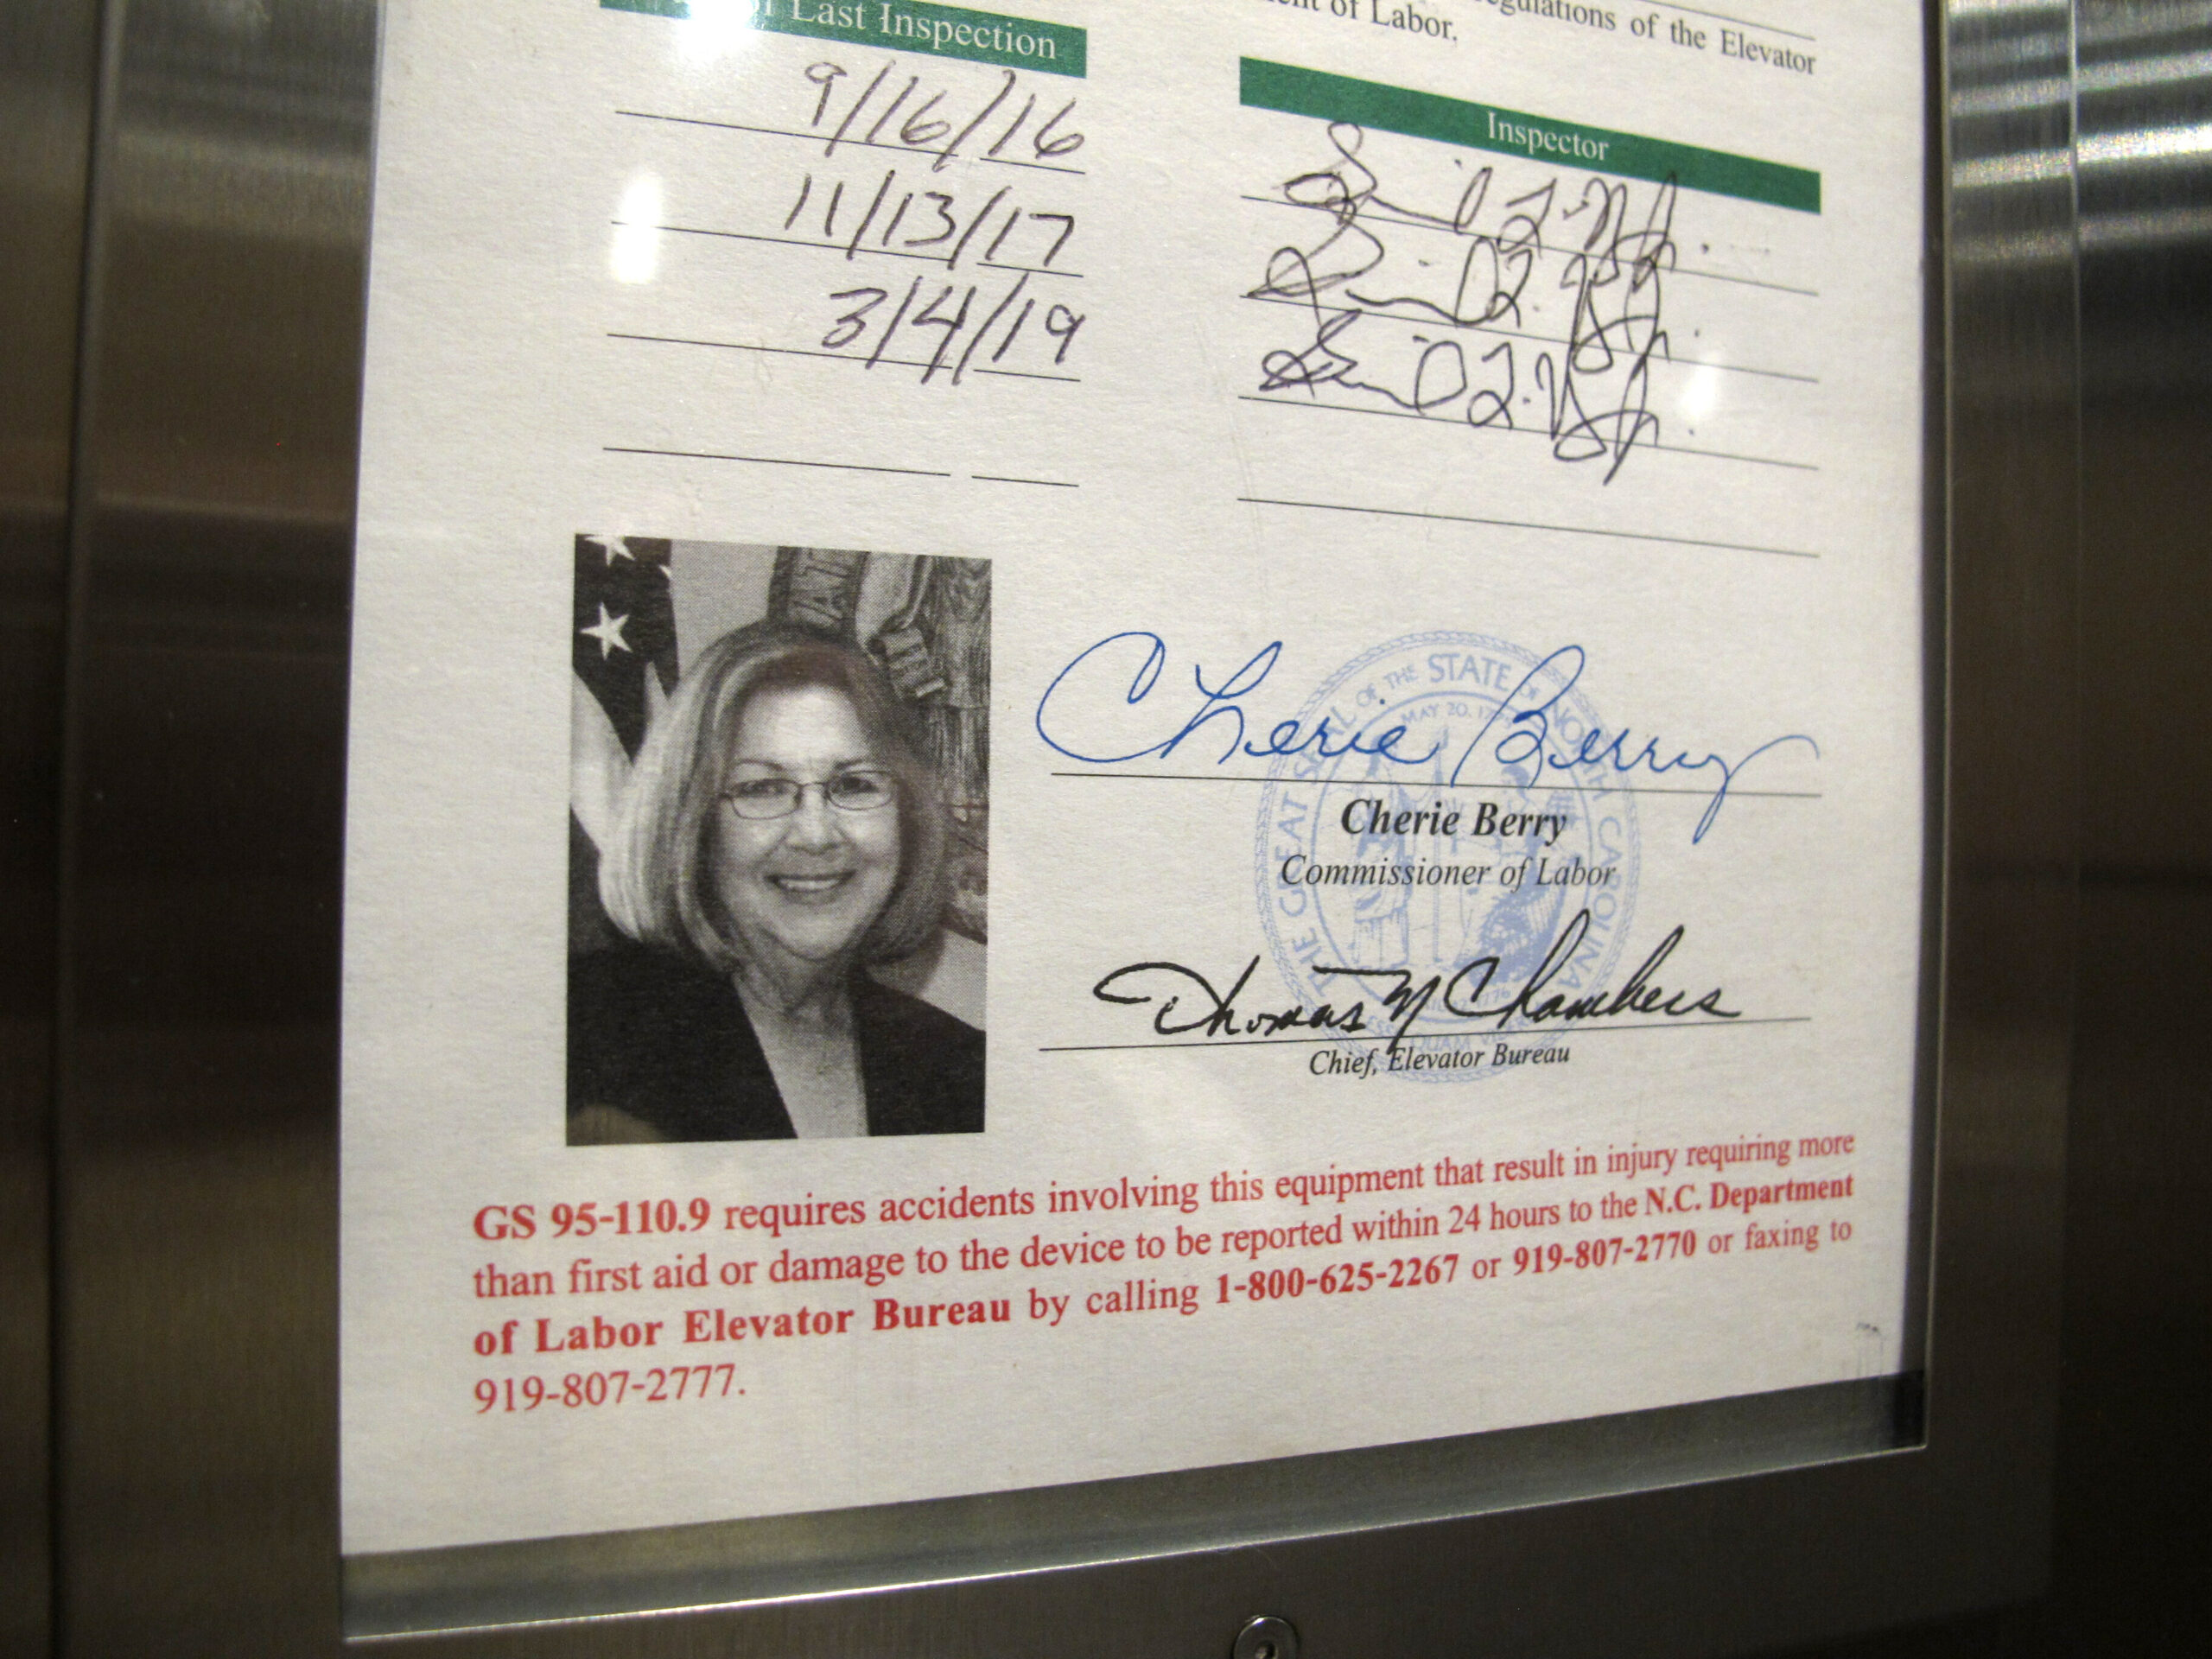 Last Inspection
gulations of the Elevator
of Labor.
Inspector
9/16/16
11/13/17
3/4/19
THE GREAT SEAL OF THE STATE OF NORTH CAROLINA
MAY 20, 17
Cherie Berry
Cherie Berry
Commissioner of Labor
Thomas N Chambers
Chief, Elevator Bureau
GS 95-110.9 requires accidents involving this equipment that result in injury requiring more
than first aid or damage to the device to be reported within 24 hours to the N.C. Department
of Labor Elevator Bureau by calling 1-800-625-2267 or 919-807-2770 or faxing to
919-807-2777.